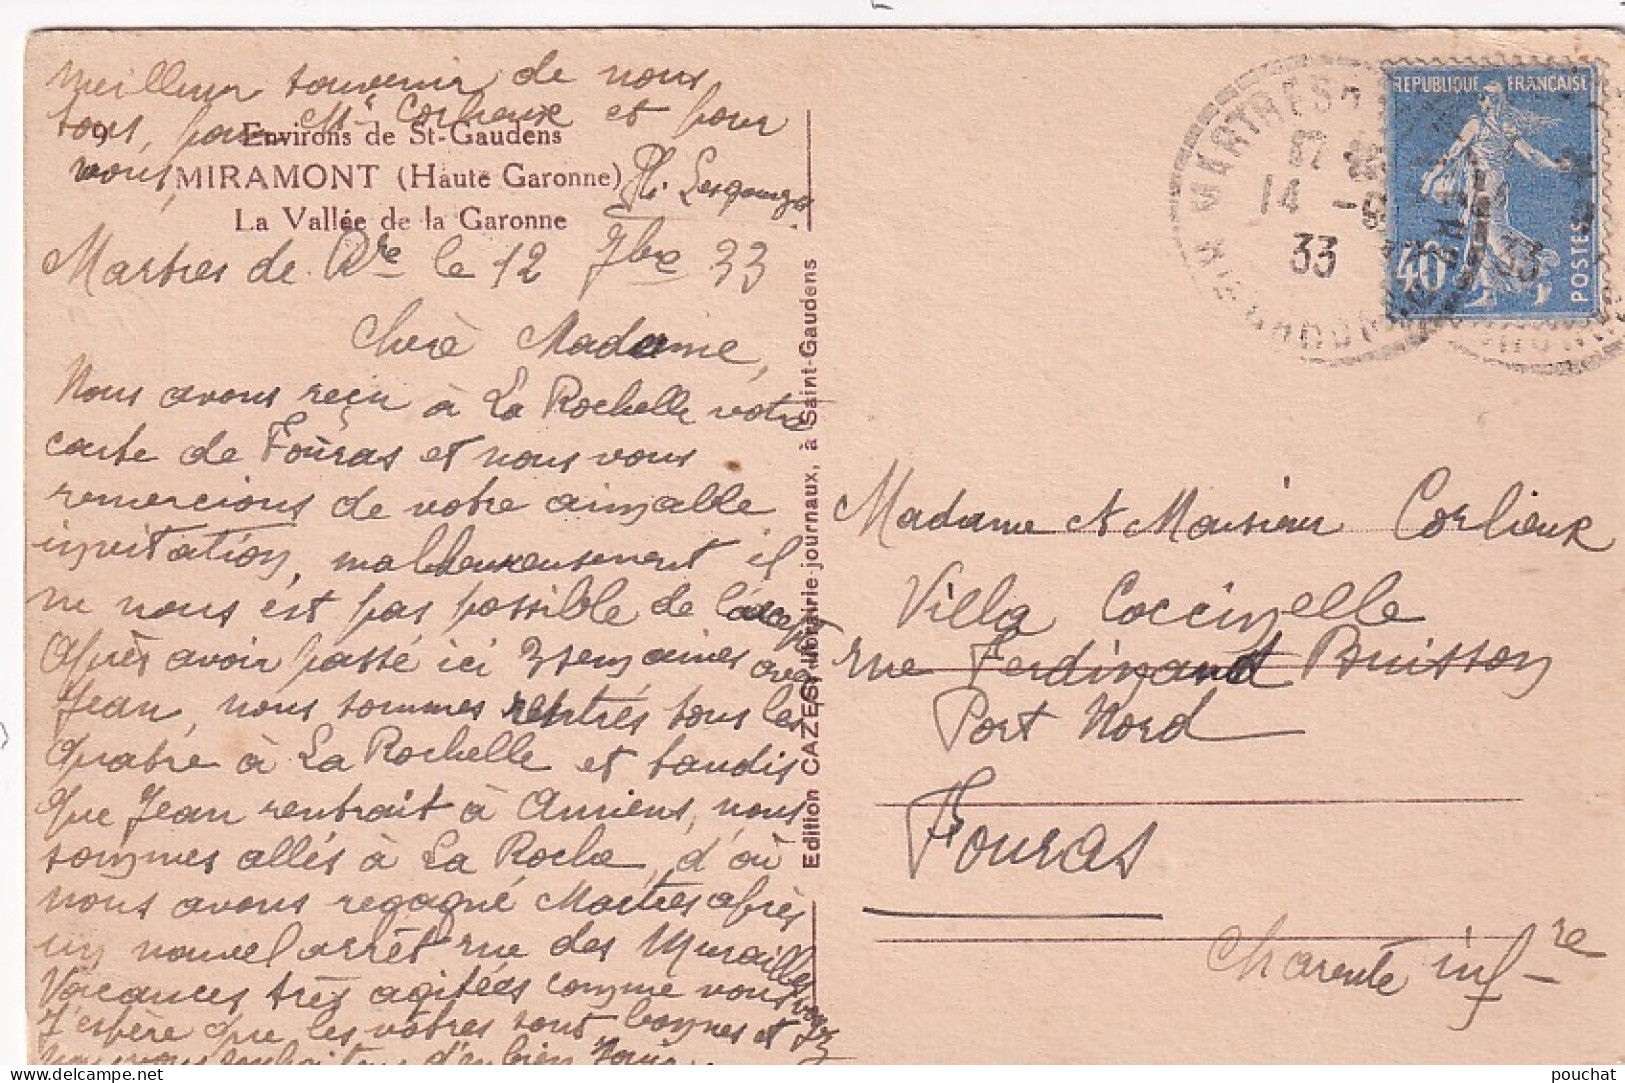 Meilleur souvenir de nous
tous, pour Mr Corlieux et pour
vous, Ph. Lesgourgu
9 Environs de St-Gaudens
MIRAMONT (Haute Garonne)
La Vallée de la Garonne
Martres de Rre le 12 7bre 33
Chère Madame,
Nous avons reçu à La Rochelle votre
carte de Fouras et nous vous
remercions de votre aimable
invitation, malheureusement il
ne nous est pas possible de l'accepter
Après avoir passé ici 3 semaines avec
Jean, nous sommes rentrés tous les
quatre à La Rochelle et tandis
que Jean rentrait à Amiens, nous
sommes allés à La Roche, d'où
nous avons regagné Martres après
un nouvel arrêt rue des Murailles
Vacances très agitées comme vous voyez
J'espère que les vôtres sont bonnes et
vous souhaitons d'en bien jouir
Edition CAZES, librairie-journaux, à Saint-Gaudens
REPUBLIQUE FRANÇAISE
40 POSTES
MARTRES
17
14 - 9
33
33
Hte GARONNE
Madame et Monsieur Corlieux
Villa Coccinelle
rue Ferdinand Buisson
Port Nord
Fouras
Charente infre
pouchat